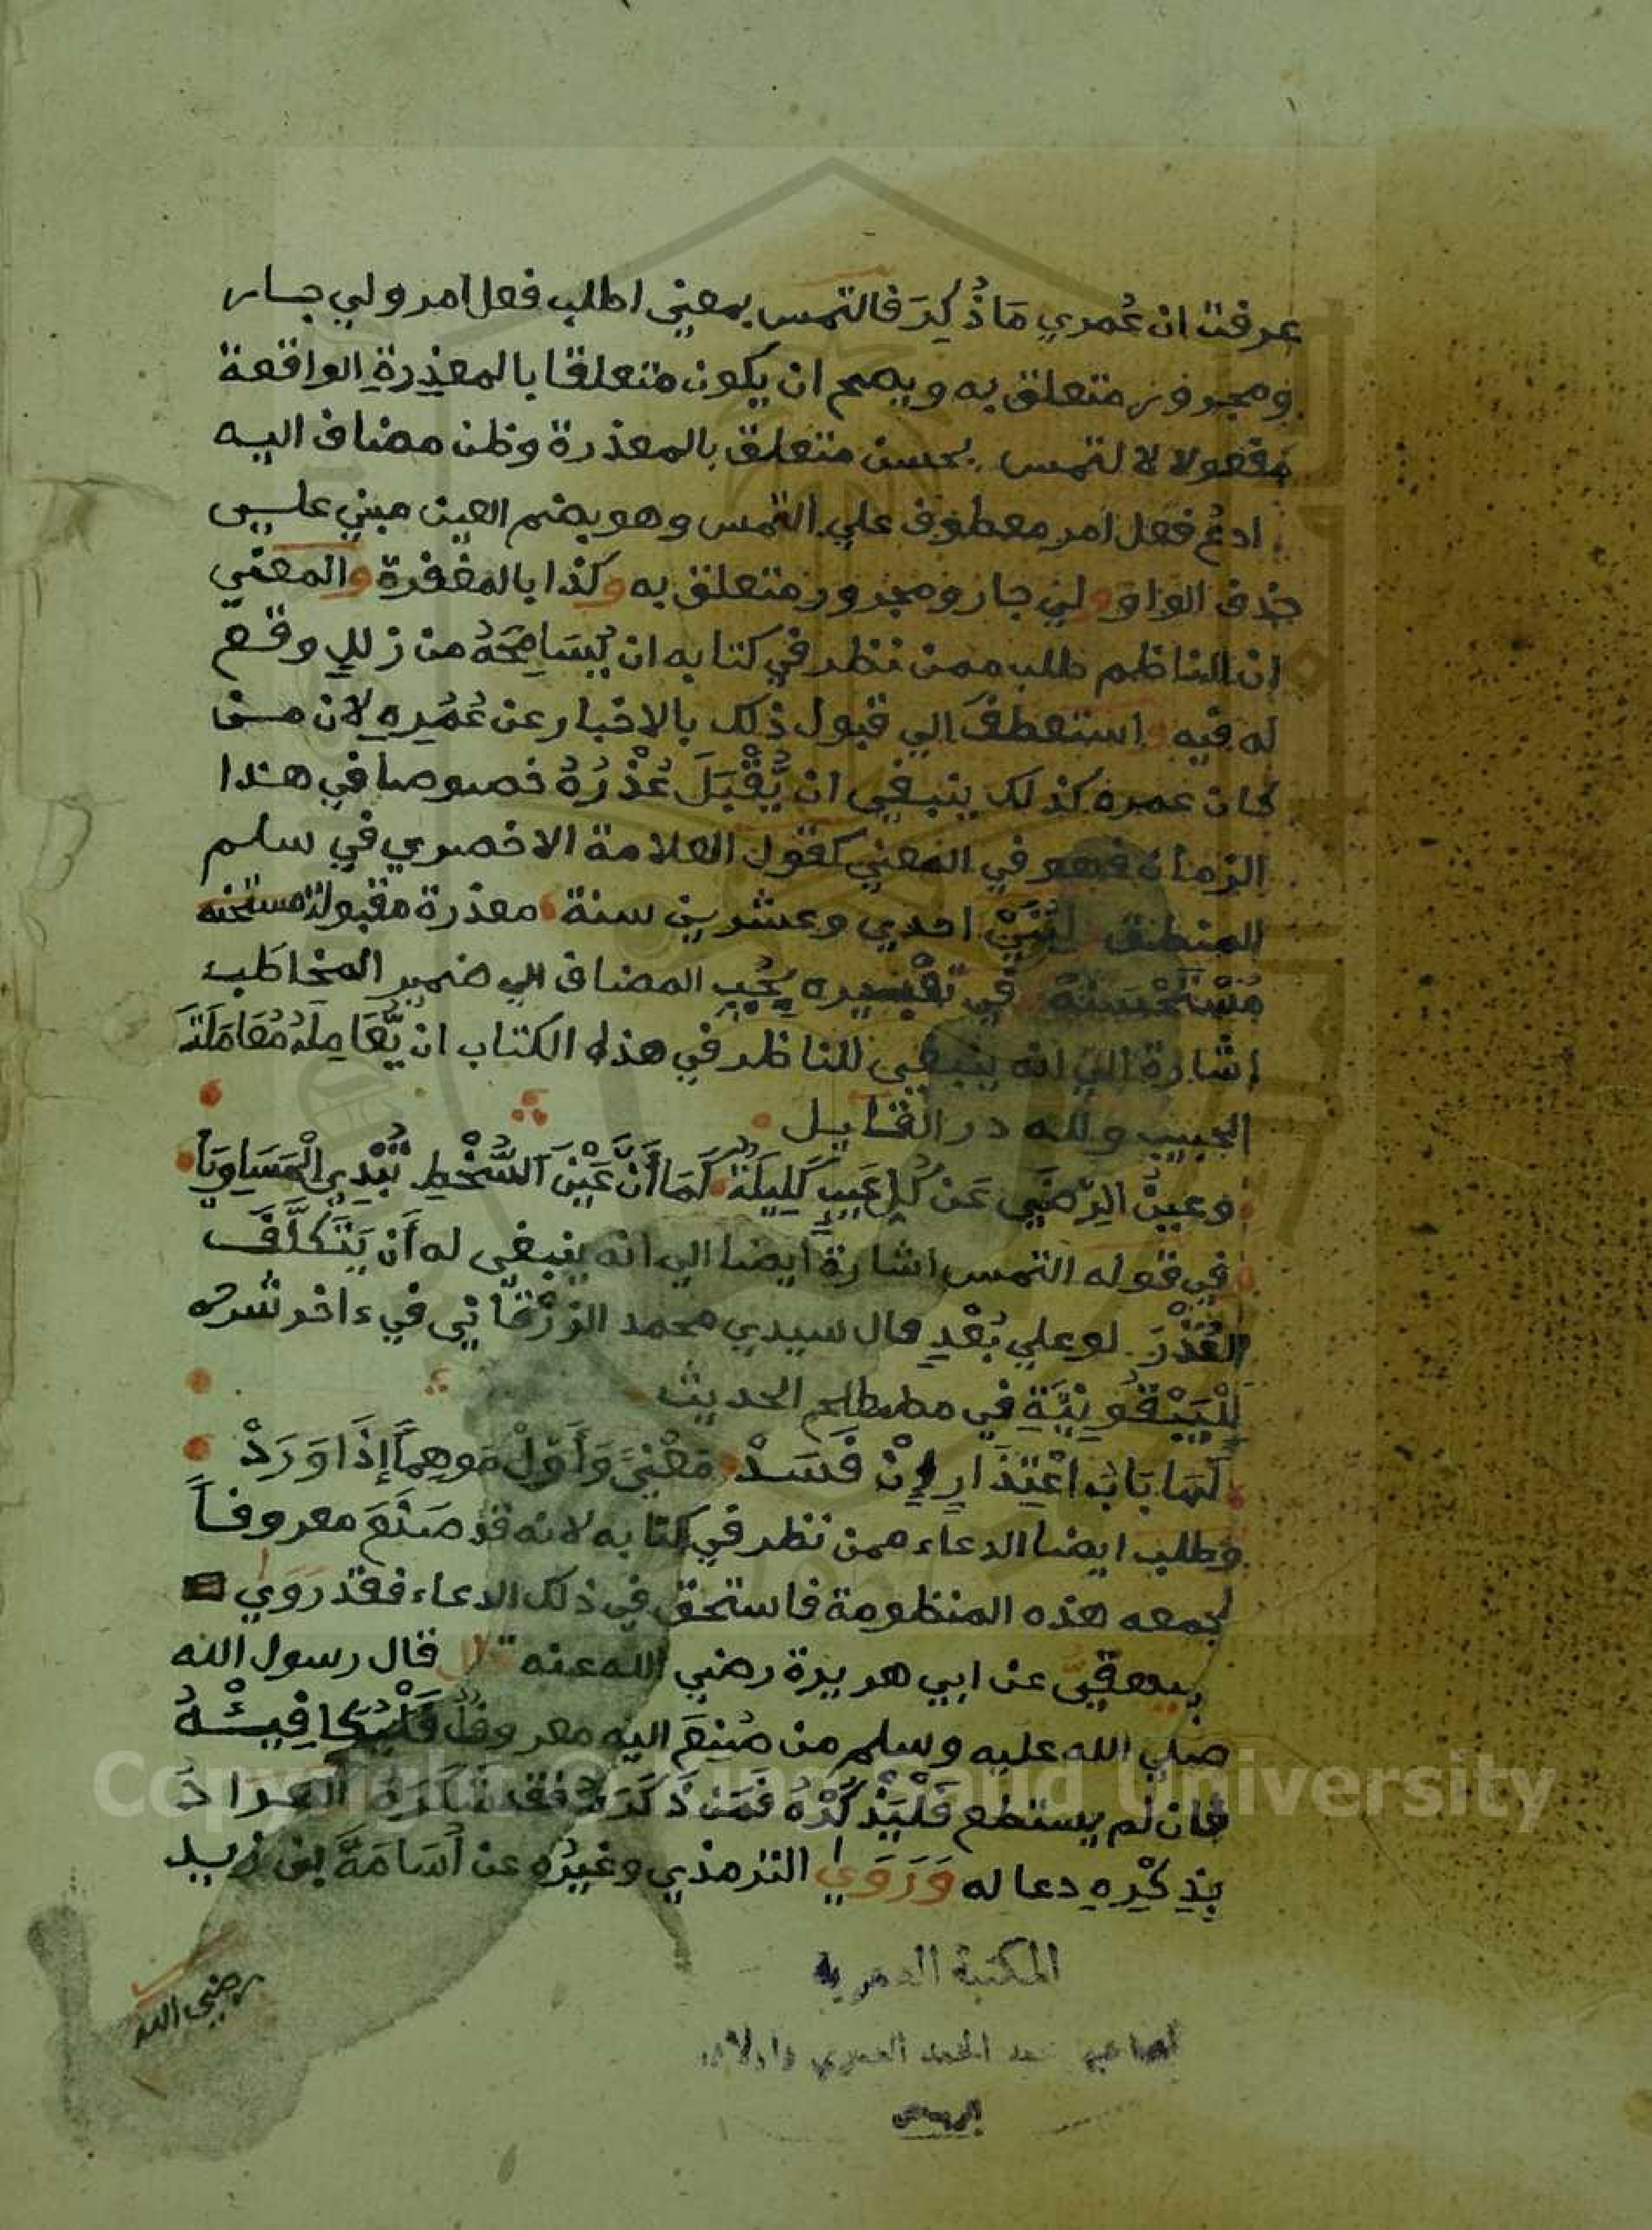 عرفت ان عُمري مَا ذُكِرَ فالتمس بمعني اطلب فعل امر ولي جار
ومجرور متعلق به ويصح ان يكون متعلقا بالمعذرة الواقعة
مفعولا لالتمس بحسن متعلق بالمعذرة وظن مضاف اليه
ادعُ فعل امر معطوف علي التمس وهو بضم العين مبني علي
حذف الواو ولي جار ومجرور متعلق به وكذا بالمغفرة والمعني
ان الناظم طلب ممن نظر في كتابه ان يُسَامِحَهُ من زللٍ وقع
له فيه واستعطف الي قبول ذلك بالاخبار عن عُمُرِه لان من
كان عمره كذلك ينبغي ان يُّقْبَلَ عُذْرُهُ خصوصا في هذا
الزمان فهو في المعني كقول العلامة الاخضري في سلم
المنطق لِبَنِيْ احدي وعشرين سنة معذرة مقبولة مستحسنه
مُسْتَحْسَنَة في تعبيره بِحُبِّ المضاف الي ضمير المخاطب
اشارة الي انه ينبغي للناظر في هذا الكتاب ان يُّعَامِلَهُ مُعَامَلَةَ
الحبيب ولله در القايل
وعينُ الرِّضَي عَن كُلِّ عَيبٍ كَلِيلَةٌ كَمَا أَنَّ عَيْنَ السُّخْطِ تُبْدِي الْمَسَاوِيَا
في قوله التمس اشارة أيضا الي انه ينبغي له أَن يَتَكَلَّفَ
العُذْرَ لو علي بُعْدٍ قال سيدي محمد الزُرْقَانِي في ءاخر شرحه
لِلْبَيْقُونِيَّةِ في مصطلح الحديث
لَهَا بَابَ اعْتِذَارٍ إِنْ فَسَدْ مَعْنيً وَأَوِّلْ مُوهِمًا إِذَا وَرَدْ
وطلب ايضا الدعاء ممن نظر في كتابه لانه قد صَنَعَ معروفاً
لجمعه هذه المنظومة فاستحق في ذلك الدعاء فقد رَوَي
بيهقيّ عن ابي هريرة رضي الله عنه قال قال رسول الله
صلي الله عليه وسلم من صُنِعَ اليه معروفٌ فَلْيُكَافِيْهُ
فان لم يستطع فَلْيَذْكُرْهُ فَمَن ذَكَرَهُ فقد شَكَرَهُ المرادُ
بِذِكْرِهِ دعا له وَرَوَي الترمذي وغيرُه عن أُسَامَةَ بن زيد
رضي الله
المكتبة العمرية